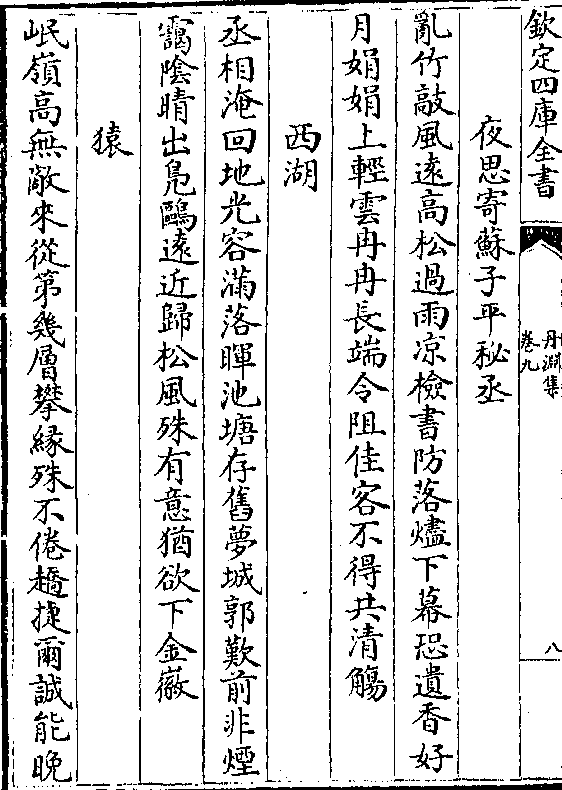 欽定四庫全書
丹淵集
卷九
八
夜思寄蘇子平秘丞
亂竹敲風遠高松過雨凉檢書防落燼下幕恐遺香好
月娟娟上輕雲冉冉長端令阻佳客不得共清觴
西湖
丞相淹回地光容滿落暉池塘存舊夢城郭歎前非煙
靄陰晴出鳬鷗遠近歸松風殊有意猶欲下金徽
猿
岷嶺高無敵來從第幾層攀緣殊不倦趫捷爾誠能晚